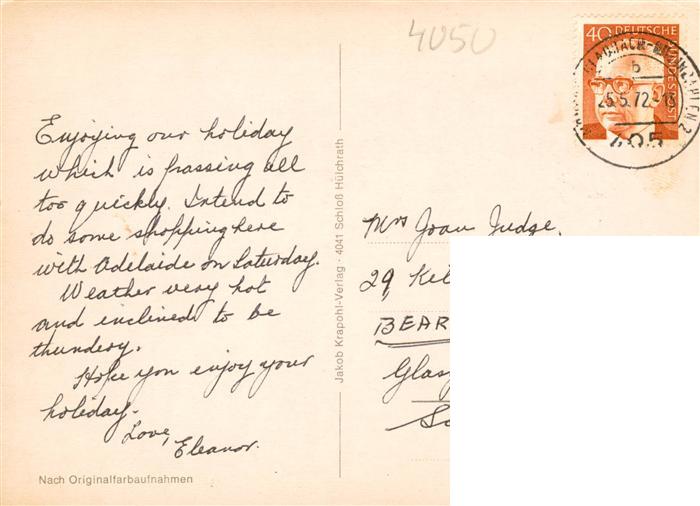 4050
40 DEUTSCHE BUNDESPOST
25.5.72-18
405
Enjoying our holiday
which is passing all
too quickly. Intend to
do some shopping here
with Adelaide on Saturday.
Weather very hot
and inclined to be
thundery.
Hope you enjoy your
holiday.
Love,
Eleanor.
Nach Originalfarbaufnahmen
Jakob Krapohl-Verlag · 4041 Schloß Hülchrath
Mrs Joan Judge,
29, Kil
BEAR
Glas